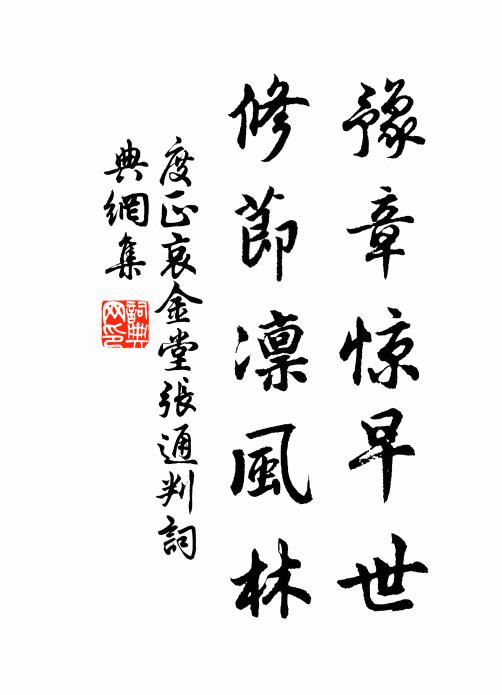 豫章惊早世
修節凛風林
度正哀金堂張通判詞
典網集
詞典網印